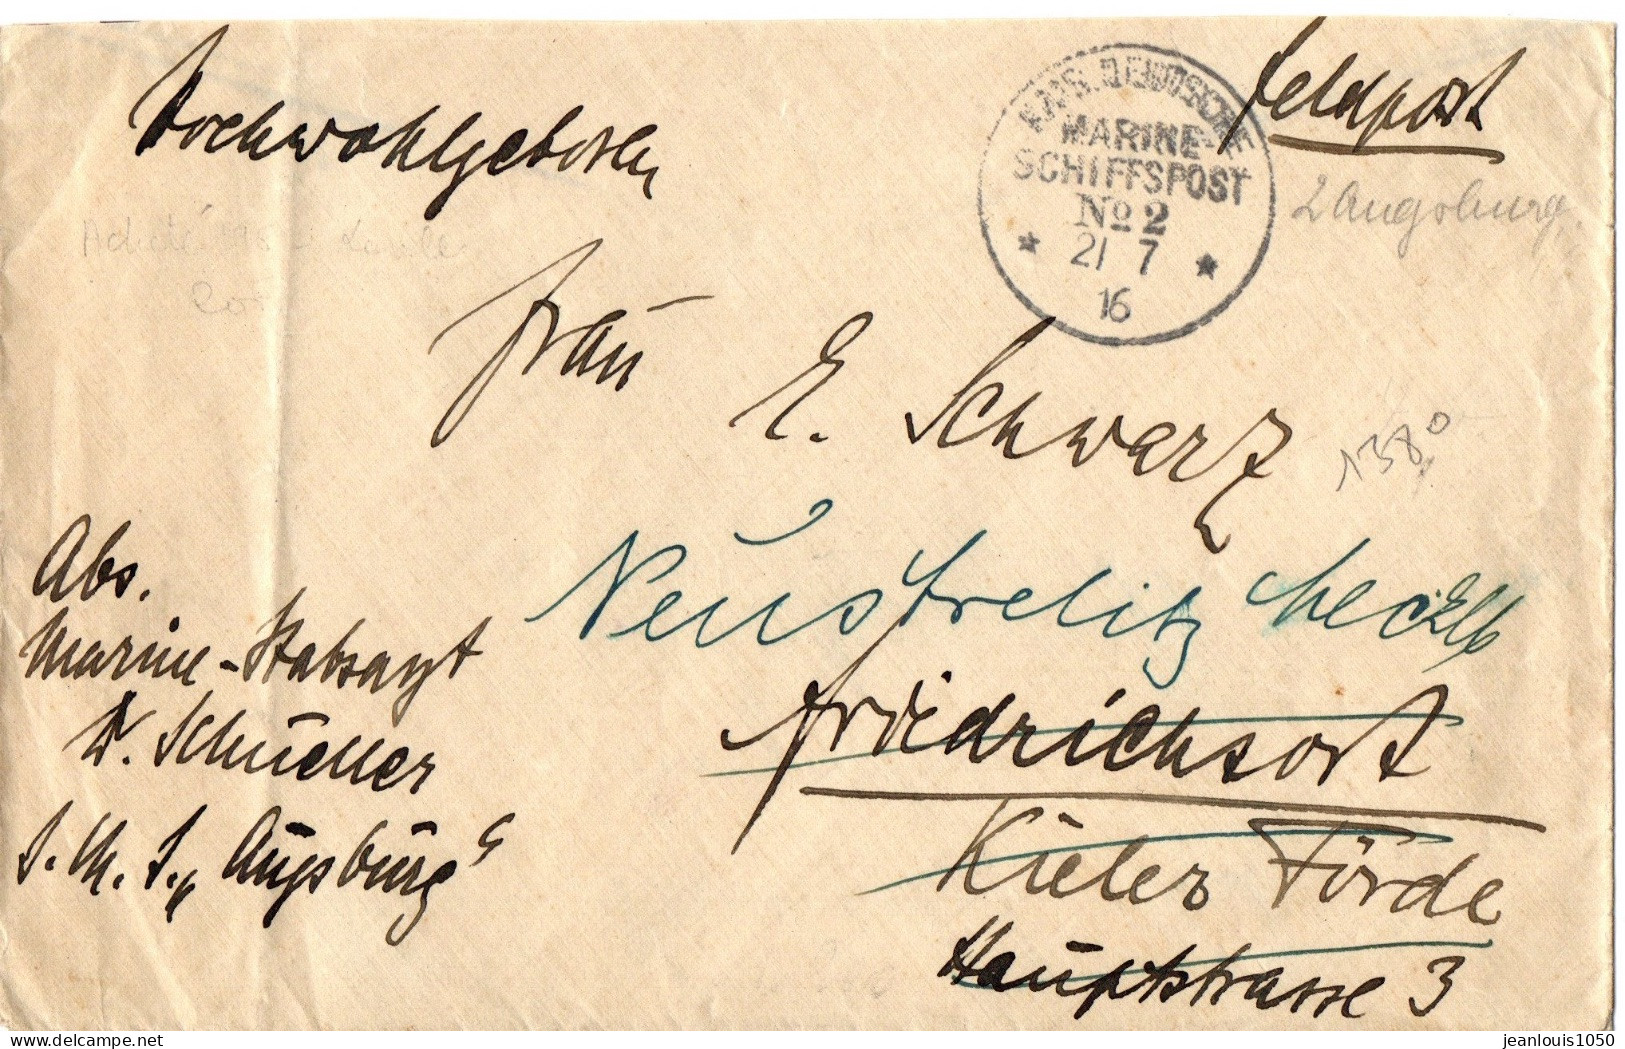 Hochwohlgeboren
Feldpost
KAIS. DEUTSCHE
MARINE-
SCHIFFSPOST
No 2
21 7
16
2 Augsburg
Frau
E. Schwarz
1380
Neustrelitz Mecklb
Friedrichsort
Kieler Förde
Hauptstrasse 3
Abs.
Marine-Stabsarzt
Dr. Schueller
S. M. S. „Augsburg“
jeanlouis1050